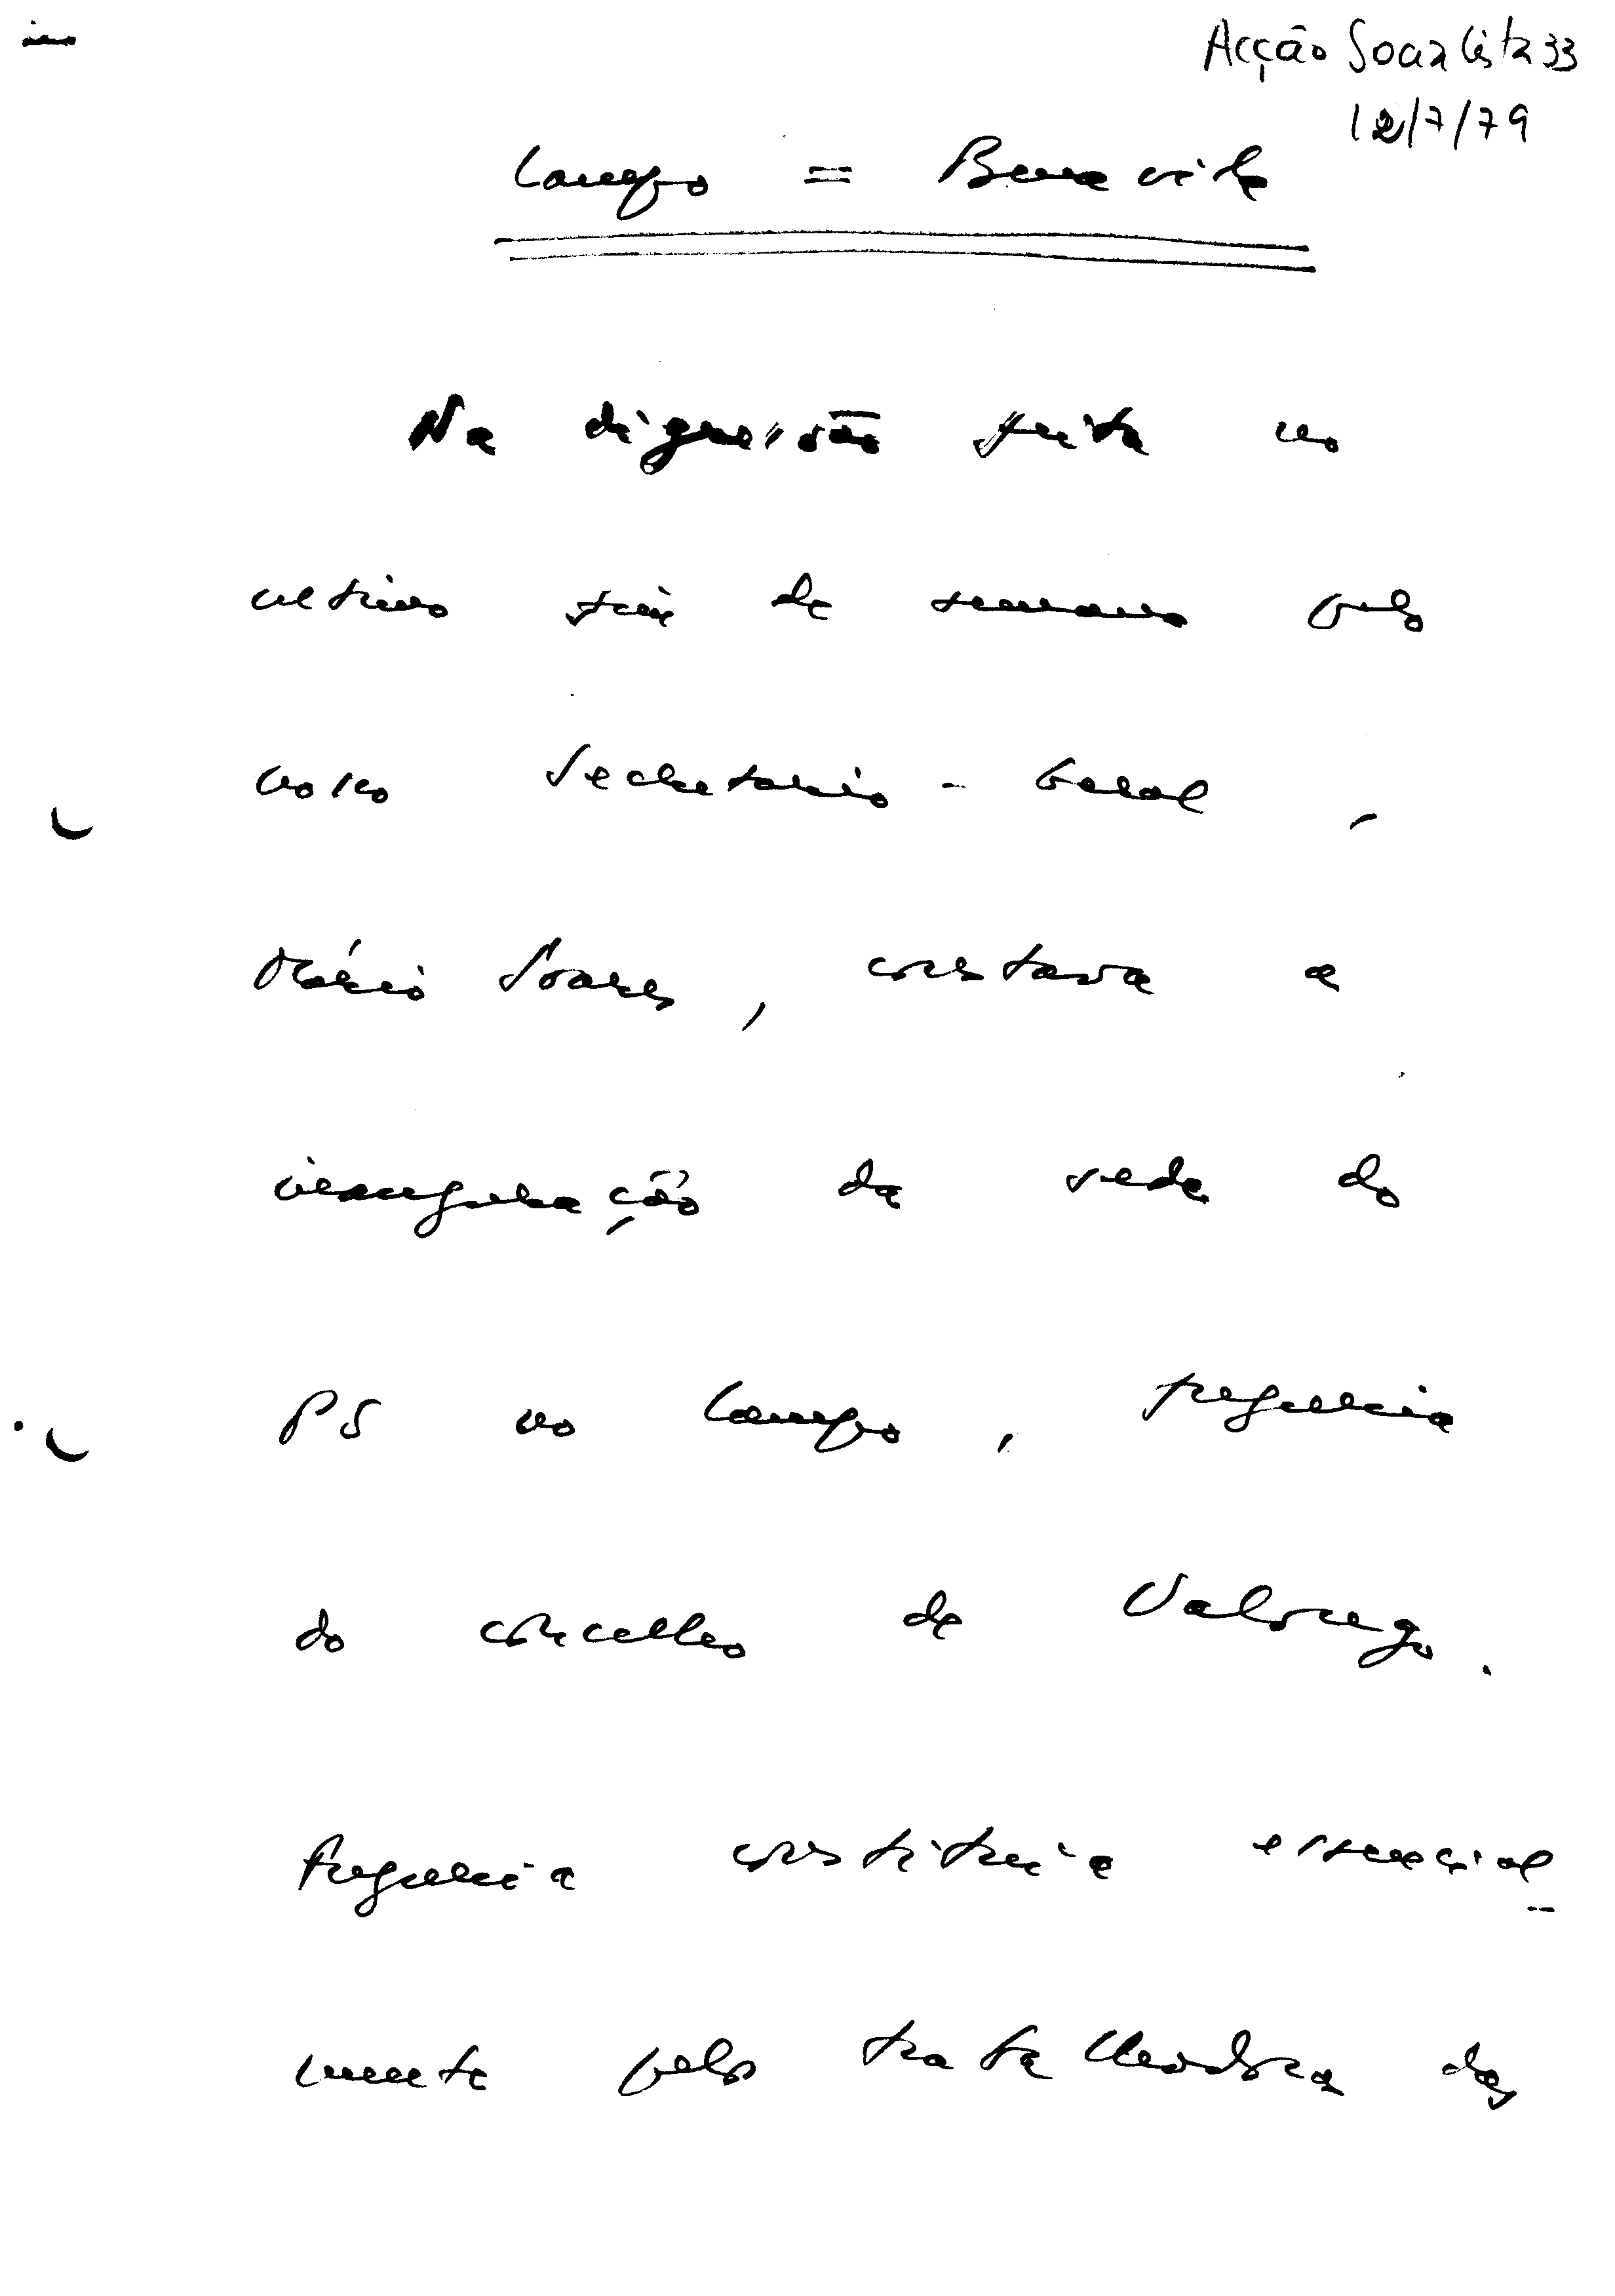 Acção Socialista 33
12/7/79
Campo = Benavila
Na digressão feita no
ultimo fim de semana pelo
nosso Secretario-Geral,
Mário Soares, constava a
inauguração da sede do
PS no Campo, freguesia
do concelho de Valongo.
Freguesia constituia essencial
mente pelos trabalhadores das